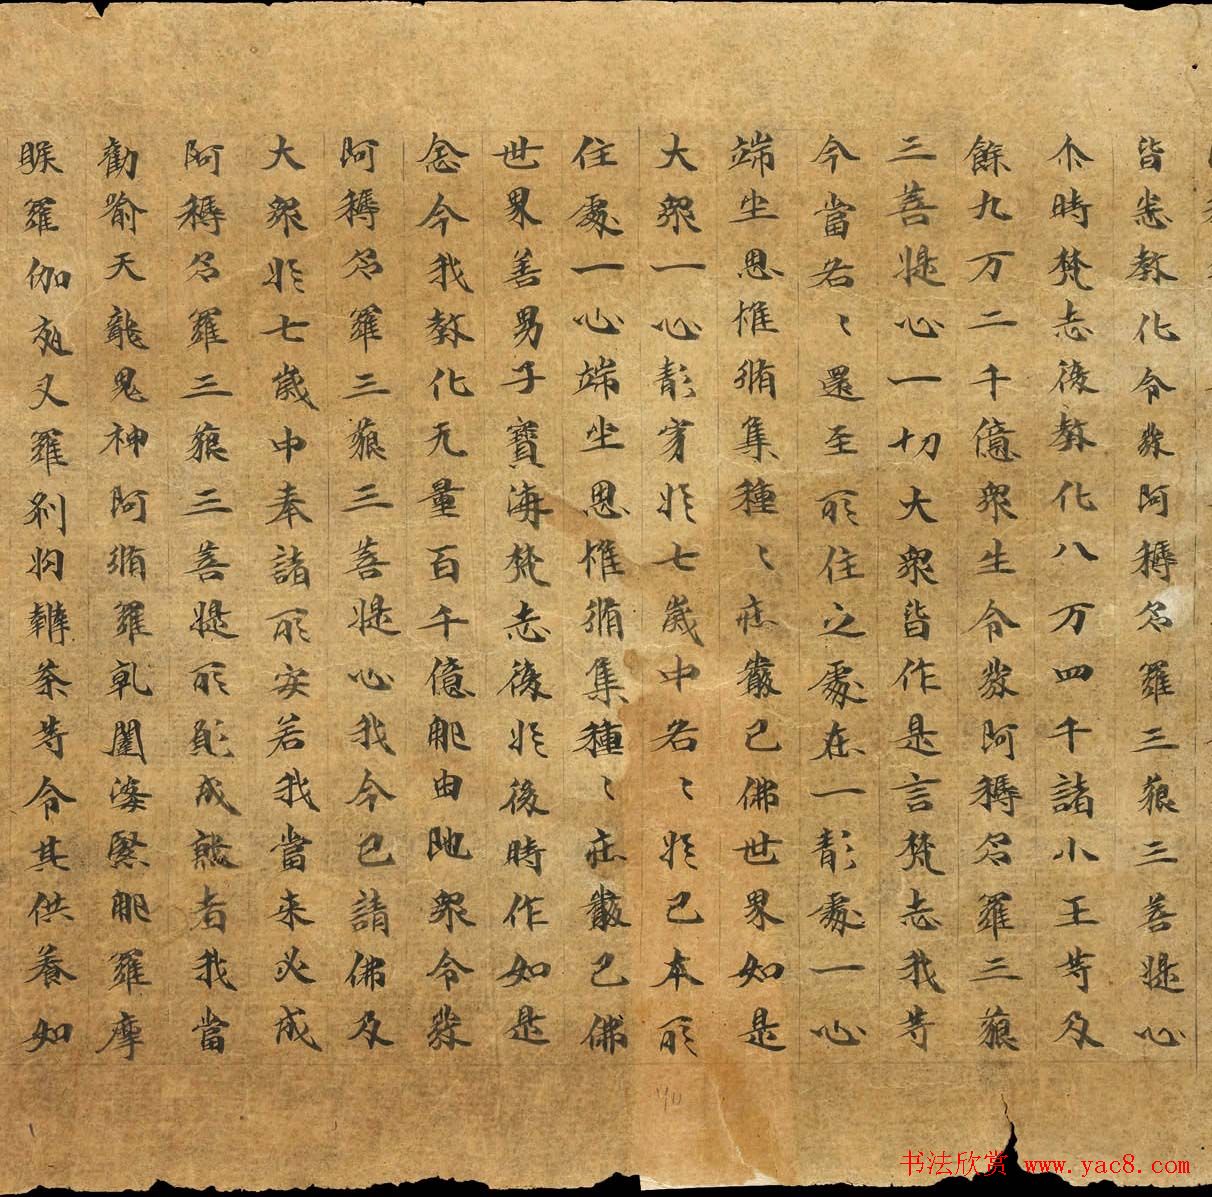 皆悉教化令發阿耨多羅三藐三菩提心
尒時梵志復教化八万四千諸小王等及
餘九万二千億眾生令發阿耨多羅三藐
三菩提心一切大眾皆作是言梵志我等
今當各々還至所住之處在一靜處一心
端坐思惟脩集種々莊嚴己佛世界如是
大眾一心靜寂於七歲中各々於己本所
住處一心端坐思惟脩集種々莊嚴己佛
世界善男子寶海梵志復於後時作如是
念今我教化无量百千億那由他眾令發
阿耨多羅三藐三菩提心我今已請佛及
大眾於七歲中奉諸所安若我當來必成
阿耨多羅三藐三菩提所願成就者我當
勸喻天龍鬼神阿脩羅乾闥婆緊那羅摩
睺羅伽夜叉羅剎拘辦荼等令其供養如
书法欣赏 www.yac8.com